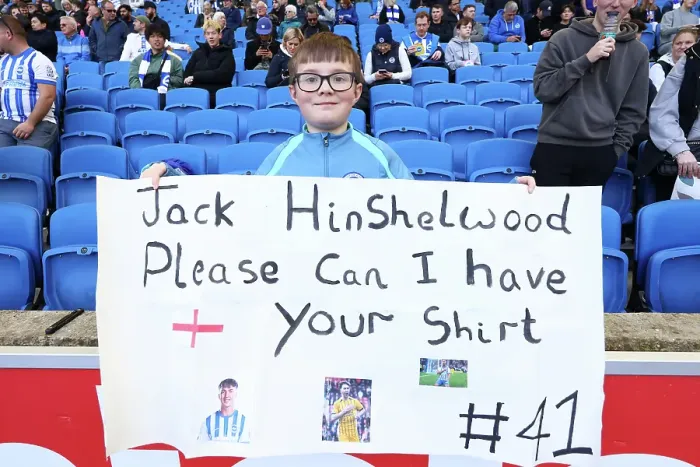 Jack Hinshelwood
Please Can I have
Your Shirt
#41